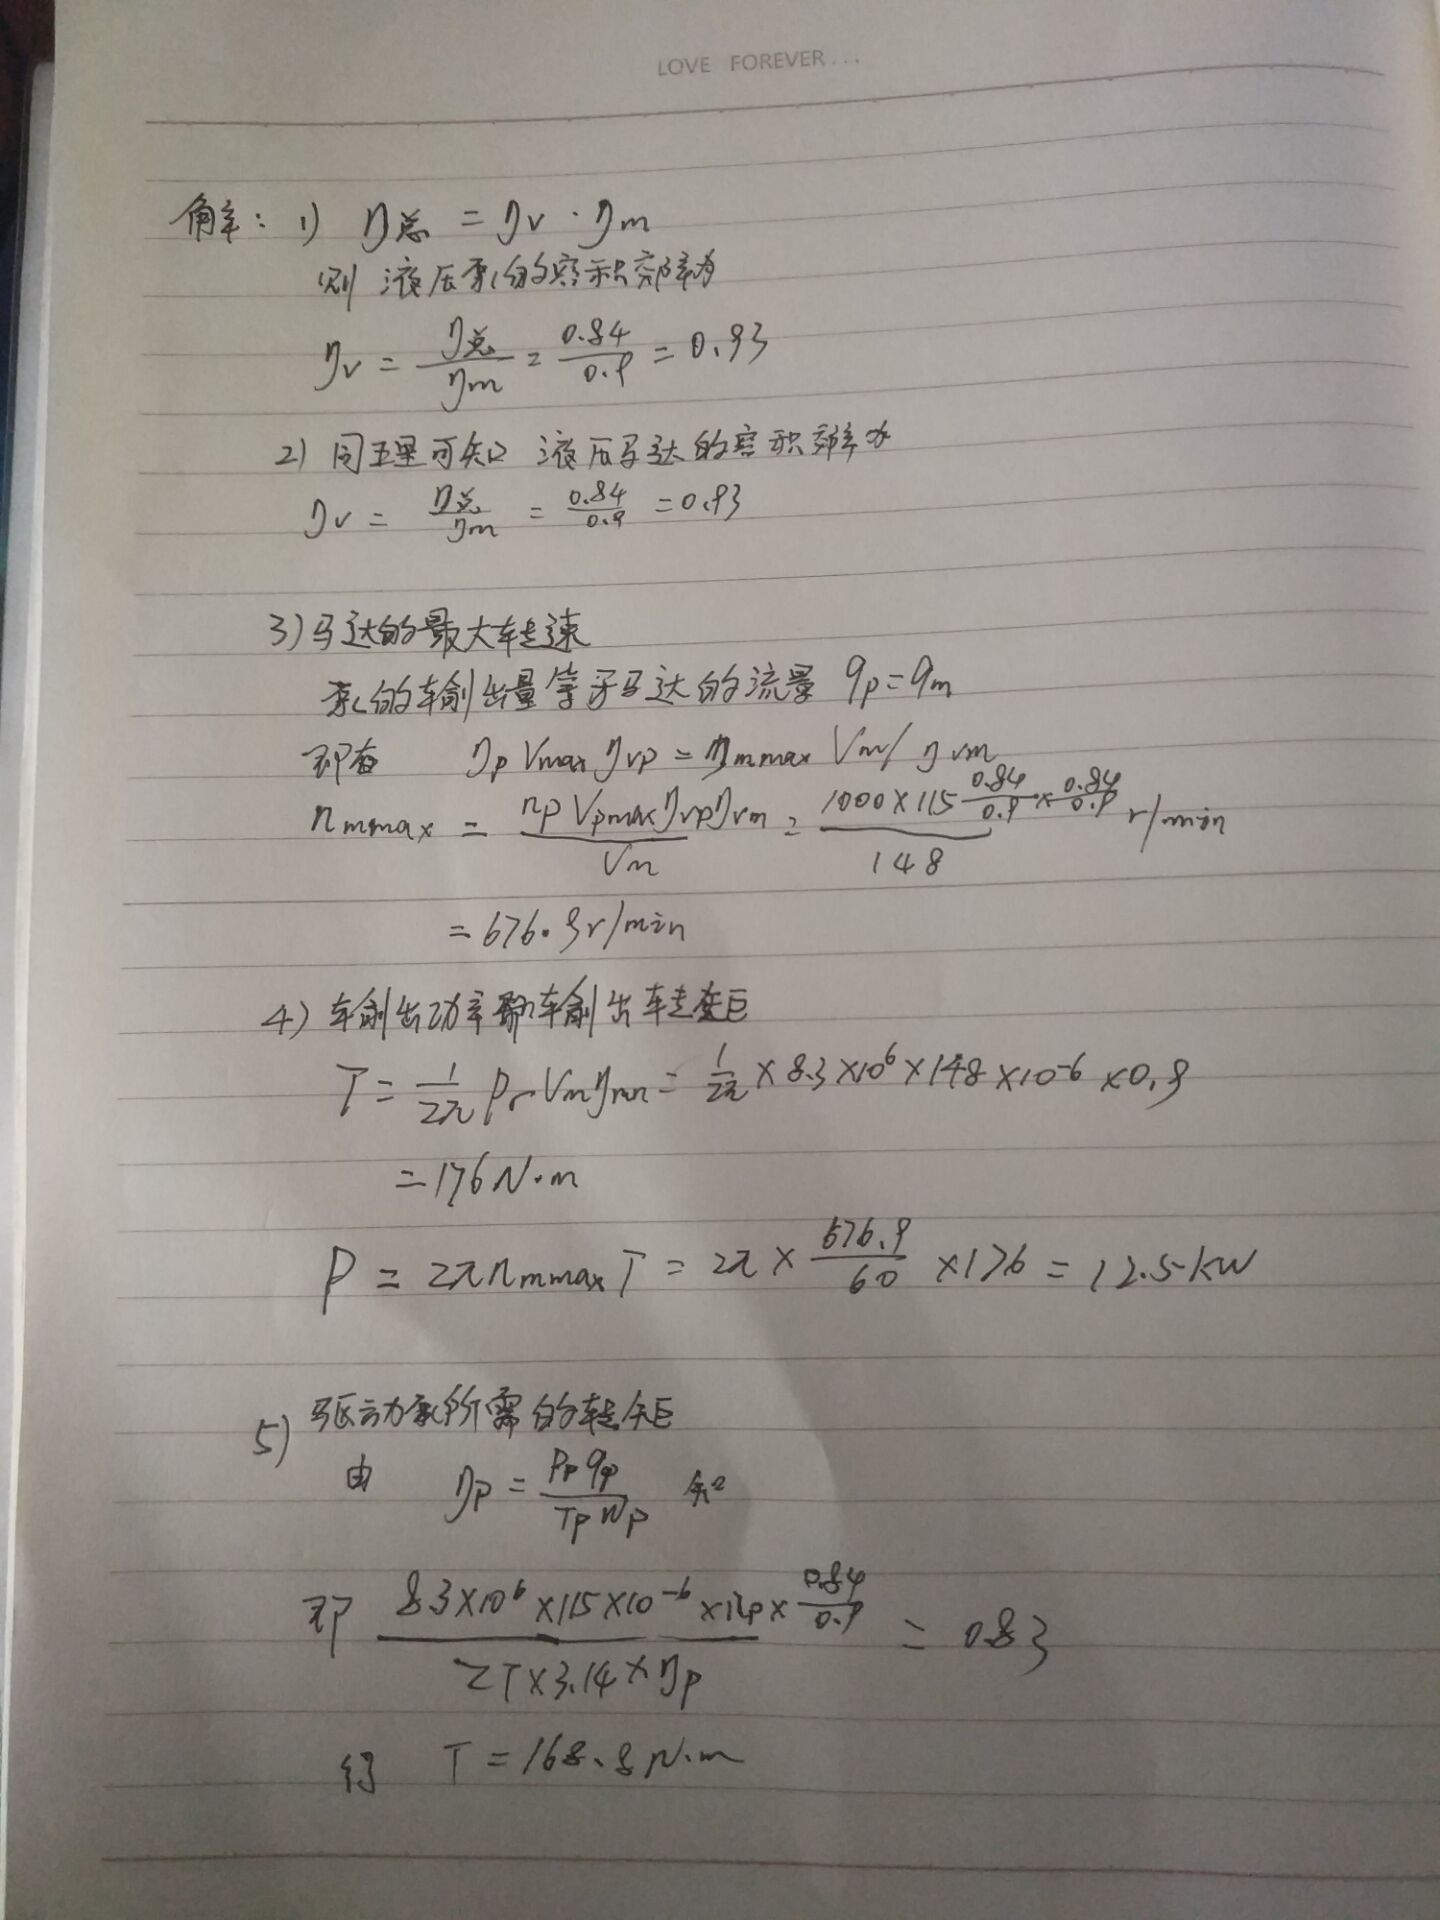 LOVE FOREVER...
解：1) η总 = ηv · ηm
则 液压泵的容积效率为
ηv = η总/ηm = 0.84/0.9 = 0.93
2) 同理可知 液压马达的容积效率为
ηv = η总/ηm = 0.84/0.9 = 0.93
3) 马达的最大转速
泵的输出量等于马达的流量 qp=qm
即有 ηp Vmax ηvp = ηmmax Vm/ηvm
nmmax = npVpmaxηvpηvm/Vm = 1000×115 0.84/0.9 × 0.84/0.9 /148 r/min
= 676.9r/min
4) 输出功率和输出转矩
T = 1/2π pr Vmηmm = 1/2π × 8.3×10⁶×148×10⁻⁶×0.9
= 176N·m
P = 2πnmmaxT = 2π × 676.9/60 ×176 = 12.5kW
5) 驱动泵所需的转矩
由 ηp = Ppqp/TpWp 知
即 8.3×10⁶×115×10⁻⁶×np×0.84/0.9 / 2T×3.14×ηp = 0.83
得 T = 168.8N·m